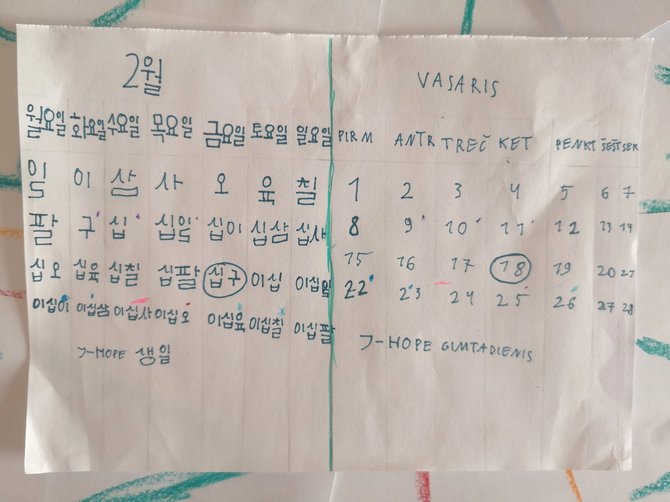 2월
월요일 화요일 수요일 목요일 금요일 토요일 일요일
일 이 삼 사 오 육 칠
팔 구 십 십일 십이 십삼 십사
십오 십육 십칠 십팔 십구 이십 이십일
이십이 이십삼 이십사 이십오 이십육 이십칠 이십팔
J-HOPE 생일
VASARIS
PIRM ANTR TREČ KET PENKT ŠEŠT SEK
1 2 3 4 5 6 7
8 9 10 11 12 13 14
15 16 17 18 19 20 21
22 23 24 25 26 27 28
J-HOPE GIMTADIENIS